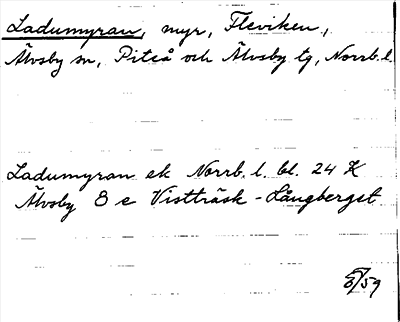 Ladumyran, myr, Fleviken,
Älvsby sn, Piteå och Älvsby tg, Norrb.l.
Ladumyran ek Norrb. l. bl. 24 K
Älvsby 8 e Vistträsk - Långberget
/59